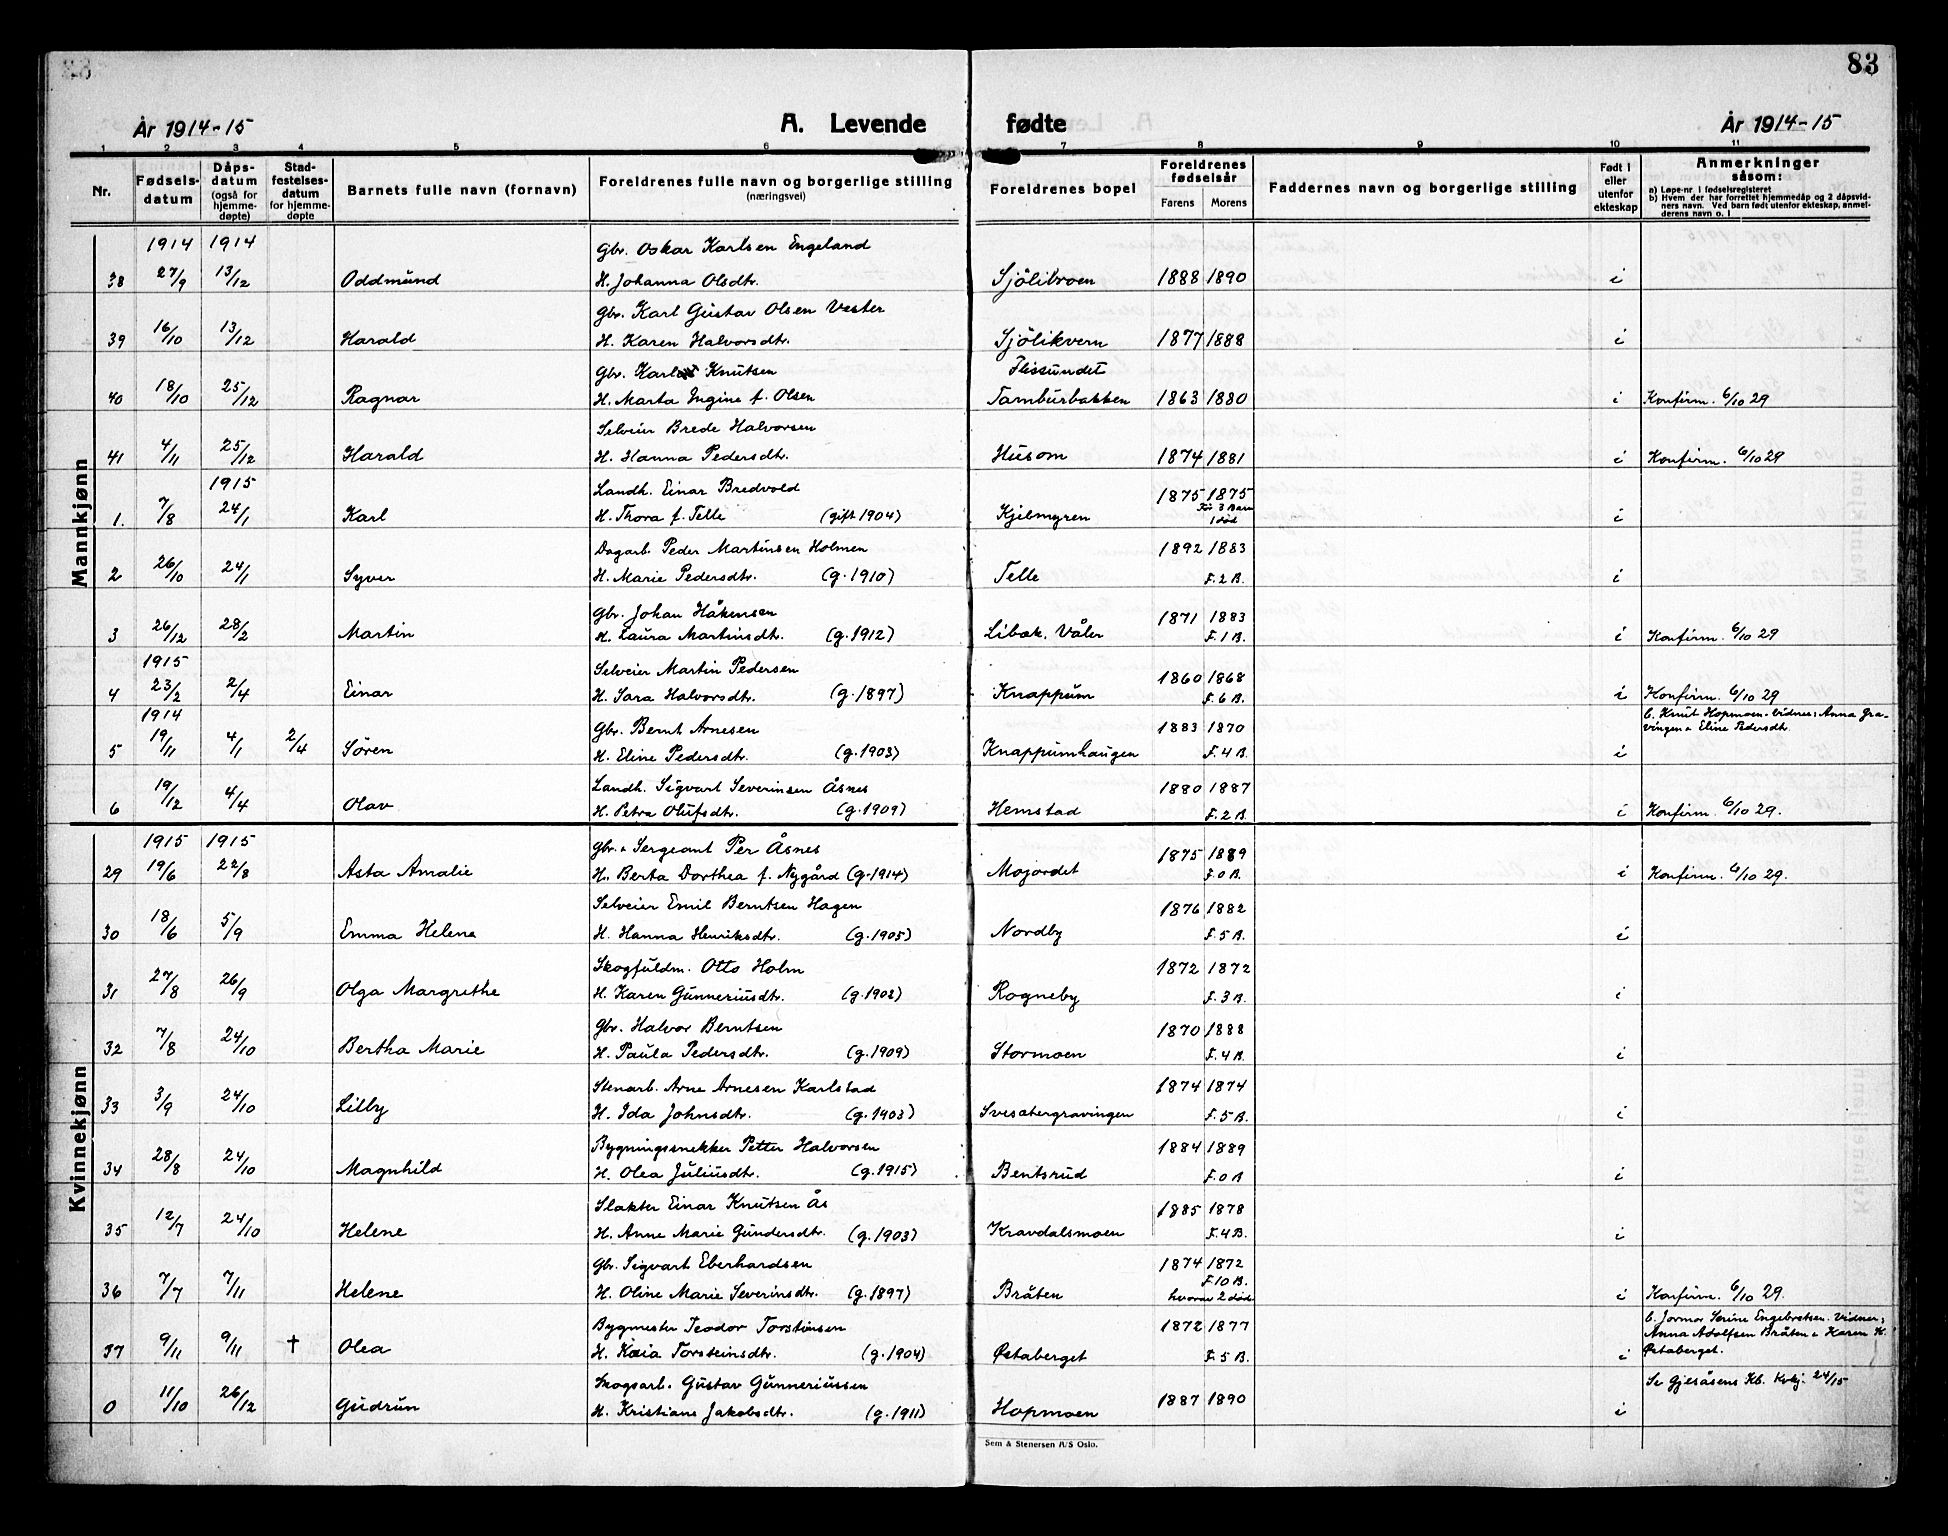 83
År 1914-15 A. Levende fødte År 1914-15
1 2 3 4 5 6 7 8 9 10 11
Nr. Fødsels-datum Dåps-datum (også for hjemme-døpte) Stad-festelses-datum for hjemme-døpte Barnets fulle navn (fornavn) Foreldrenes fulle navn og borgerlige stilling (næringsvei) Foreldrenes bopel Foreldrenes fødselsår Farens Morens Faddernes navn og borgerlige stilling Født i eller utenfor ekteskap Anmerkninger såsom:
a) Løpe-nr. i fødselsregisteret
b) Hvem der har forrettet hjemmedåp og 2 dåpsvidners navn. Ved barn født utenfor ekteskap, anmelderens navn o. l
Mannkjønn
1914 1914 Gbr. Oskar Karlsen Engeland
38 27/9 13/12 Oddmund H. Johanna Olsdtr. Sjölibroen 1888 1890 i
Gbr. Karl Gustav Olsen Vester
39 16/10 13/12 Harald H. Karen Halvorsdtr. Sjölikvern 1877 1888 i
Gbr. Karl Knutsen Flissundet
40 18/10 25/12 Ragnar H. Marta Ingine f. Olsen Tamburbakken 1863 1880 i Konfirm. 6/10 29
Selveier Brede Halvorsen
41 4/11 25/12 Harald H. Hanna Pedersdtr. Husom 1874 1881 i Konfirm. 6/10 29
1915 Landh. Einar Bredvold 1875 1875
1. 7/8 24/1 Karl H. Thora f. Telle (gift 1904) Kjelmyren Før 3 Barn 1 død i
Dagarb. Peder Martinsen Holmen 1892 1883
2 26/10 24/1 Syver H. Marie Pedersdtr. (g. 1910) Telle F. 2 B. i
Gbr. Johan Håkensen 1871 1883
3 26/12 28/2 Martin H. Laura Martinsdtr. (g. 1912) Libak. Våler F. 1 B. i Konfirm. 6/10 29
1915 Selveier Martin Pedersen 1860 1868
4 23/2 2/4 Einar H. Sara Halvorsdtr. (g. 1897) Knappum F. 6 B. i Konfirm. 6/10 29
1914 Gbr. Bernt Arnesen 1883 1870 b. Knut Hopmoen. Vidner: Anna Gra-
5 19/11 4/1 2/4 Sören H. Eline Pedersdtr. (g. 1903) Knappumhaugen F. 4 B. i vingen & Eline Pedersdtr.
Landh. Sigvart Severinsen Åsnes 1880 1887
6 19/12 4/4 Olav H. Petra Olufsdtr. (g. 1909) Hemstad F. 2 B. i Konfirm. 6/10 29.
Kvinnekjønn
1915 1915 Gbr. & Sergeant Per Åsnes 1875 1889
29 19/6 22/8 Asta Amalie H. Berta Dorthea f. Nygård (g. 1914) Mojordet F. 0 B. i Konfirm. 6/10 29.
Selveier Emil Berntsen Hagen 1876 1882
30 18/6 5/9 Emma Helene H. Hanna Henriksdtr. (g. 1905) Nordby F. 5 B. i
Skogfuldm. Otto Holm 1872 1872
31 27/8 26/9 Olga Margrethe H. Karen Gunneriusdtr. (g. 1902) Rogneby F. 3 B. i
Gbr. Halvor Berntsen 1870 1888
32 7/8 24/10 Bertha Marie H. Paula Pedersdtr. (g. 1909) Stormoen F. 4 B. i
Stenarb. Arne Arnesen Karlstad 1874 1874
33 3/9 24/10 Lilly H. Ida Johnsdtr. (g. 1903) Svesætergravingen F. 5 B. i
Bygningssnekker Petter Halvorsen 1884 1889
34 28/8 24/10 Magnhild H. Olea Juliusdtr. (g. 1915) Bentsrud F. 0 B i
Slakter Einar Knutsen Ås 1885 1878
35 12/7 24/10 Helene H. Anne Marie Gundersdtr. (g. 1903) Kravdalsmoen F. 4 B. i
Gbr. Sigvart Eberhardsen 1874 1872
36 7/7 7/11 Helene H. Oline Marie Severinsdtr. (g. 1897) Bråten F. 10 B. hvorav 2 døde i Konfirm. 6/10 29.
Bygmester Teodor Torstensen 1872 1877 b. Jormor Serine Engebretsen. Vidner:
37 9/11 9/11 † Olea H. Kaia Torsteinsdtr. (g. 1904) Østaberget F. 5 B. i Anna Adolfsen Bråten & Karen K. Østaberget.
Skogsarb. Gustav Gunneriussen Se Gjesåsens Kb. Kvkj. 24/15
0 11/10 26/12 Gudrun H. Kristiane Jakobsdtr. (g. 1911) Hopmoen 1887 1890 i
Sem & Stenersen A/S Oslo.